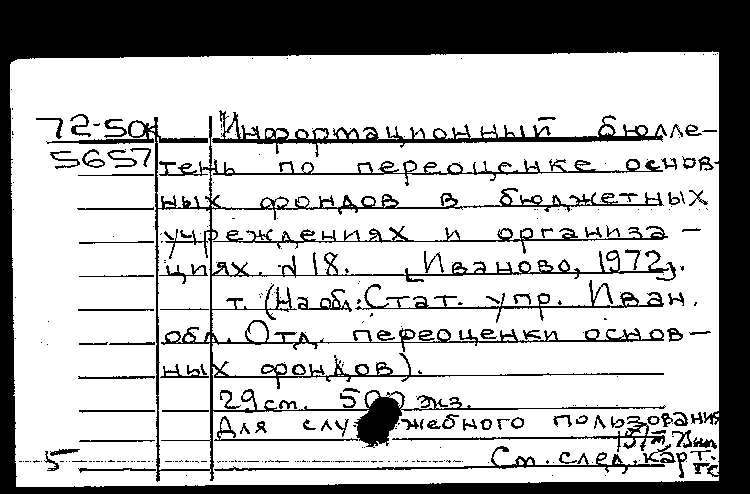 72-50к Информационный бюлле-
5657 тень по переоценке основ-
ных фондов в бюджетных
учреждениях и организа-
циях. N 18. [Иваново, 1972].
т. (На обл.: Стат. упр. Иван.
обл. Отд. переоценки основ-
ных фондов).
29 ст. 500 экз.
Для служебного пользования
5 См. след. карт.